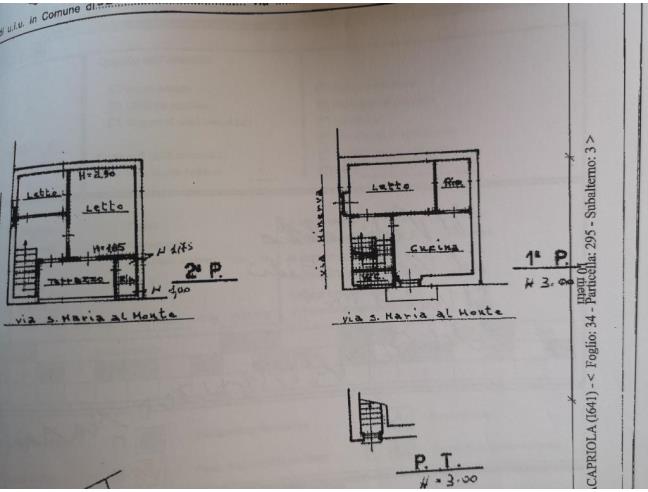 di u.i.u. in Comune di
Letto
H=2,90
Letto
H=1,85
H 1,75
Terrazzo
Rip
H 1,00
2° P.
via S. Maria al Monte
via Minerva
Letto
Rip.
Cucina
W.C.
1° P.
H 3.00
via S. Maria al Monte
P. T.
H = 3.00
10 metri
ACAPRIOLA (I641) - < Foglio: 34 - Particella: 295 - Subalterno: 3 >